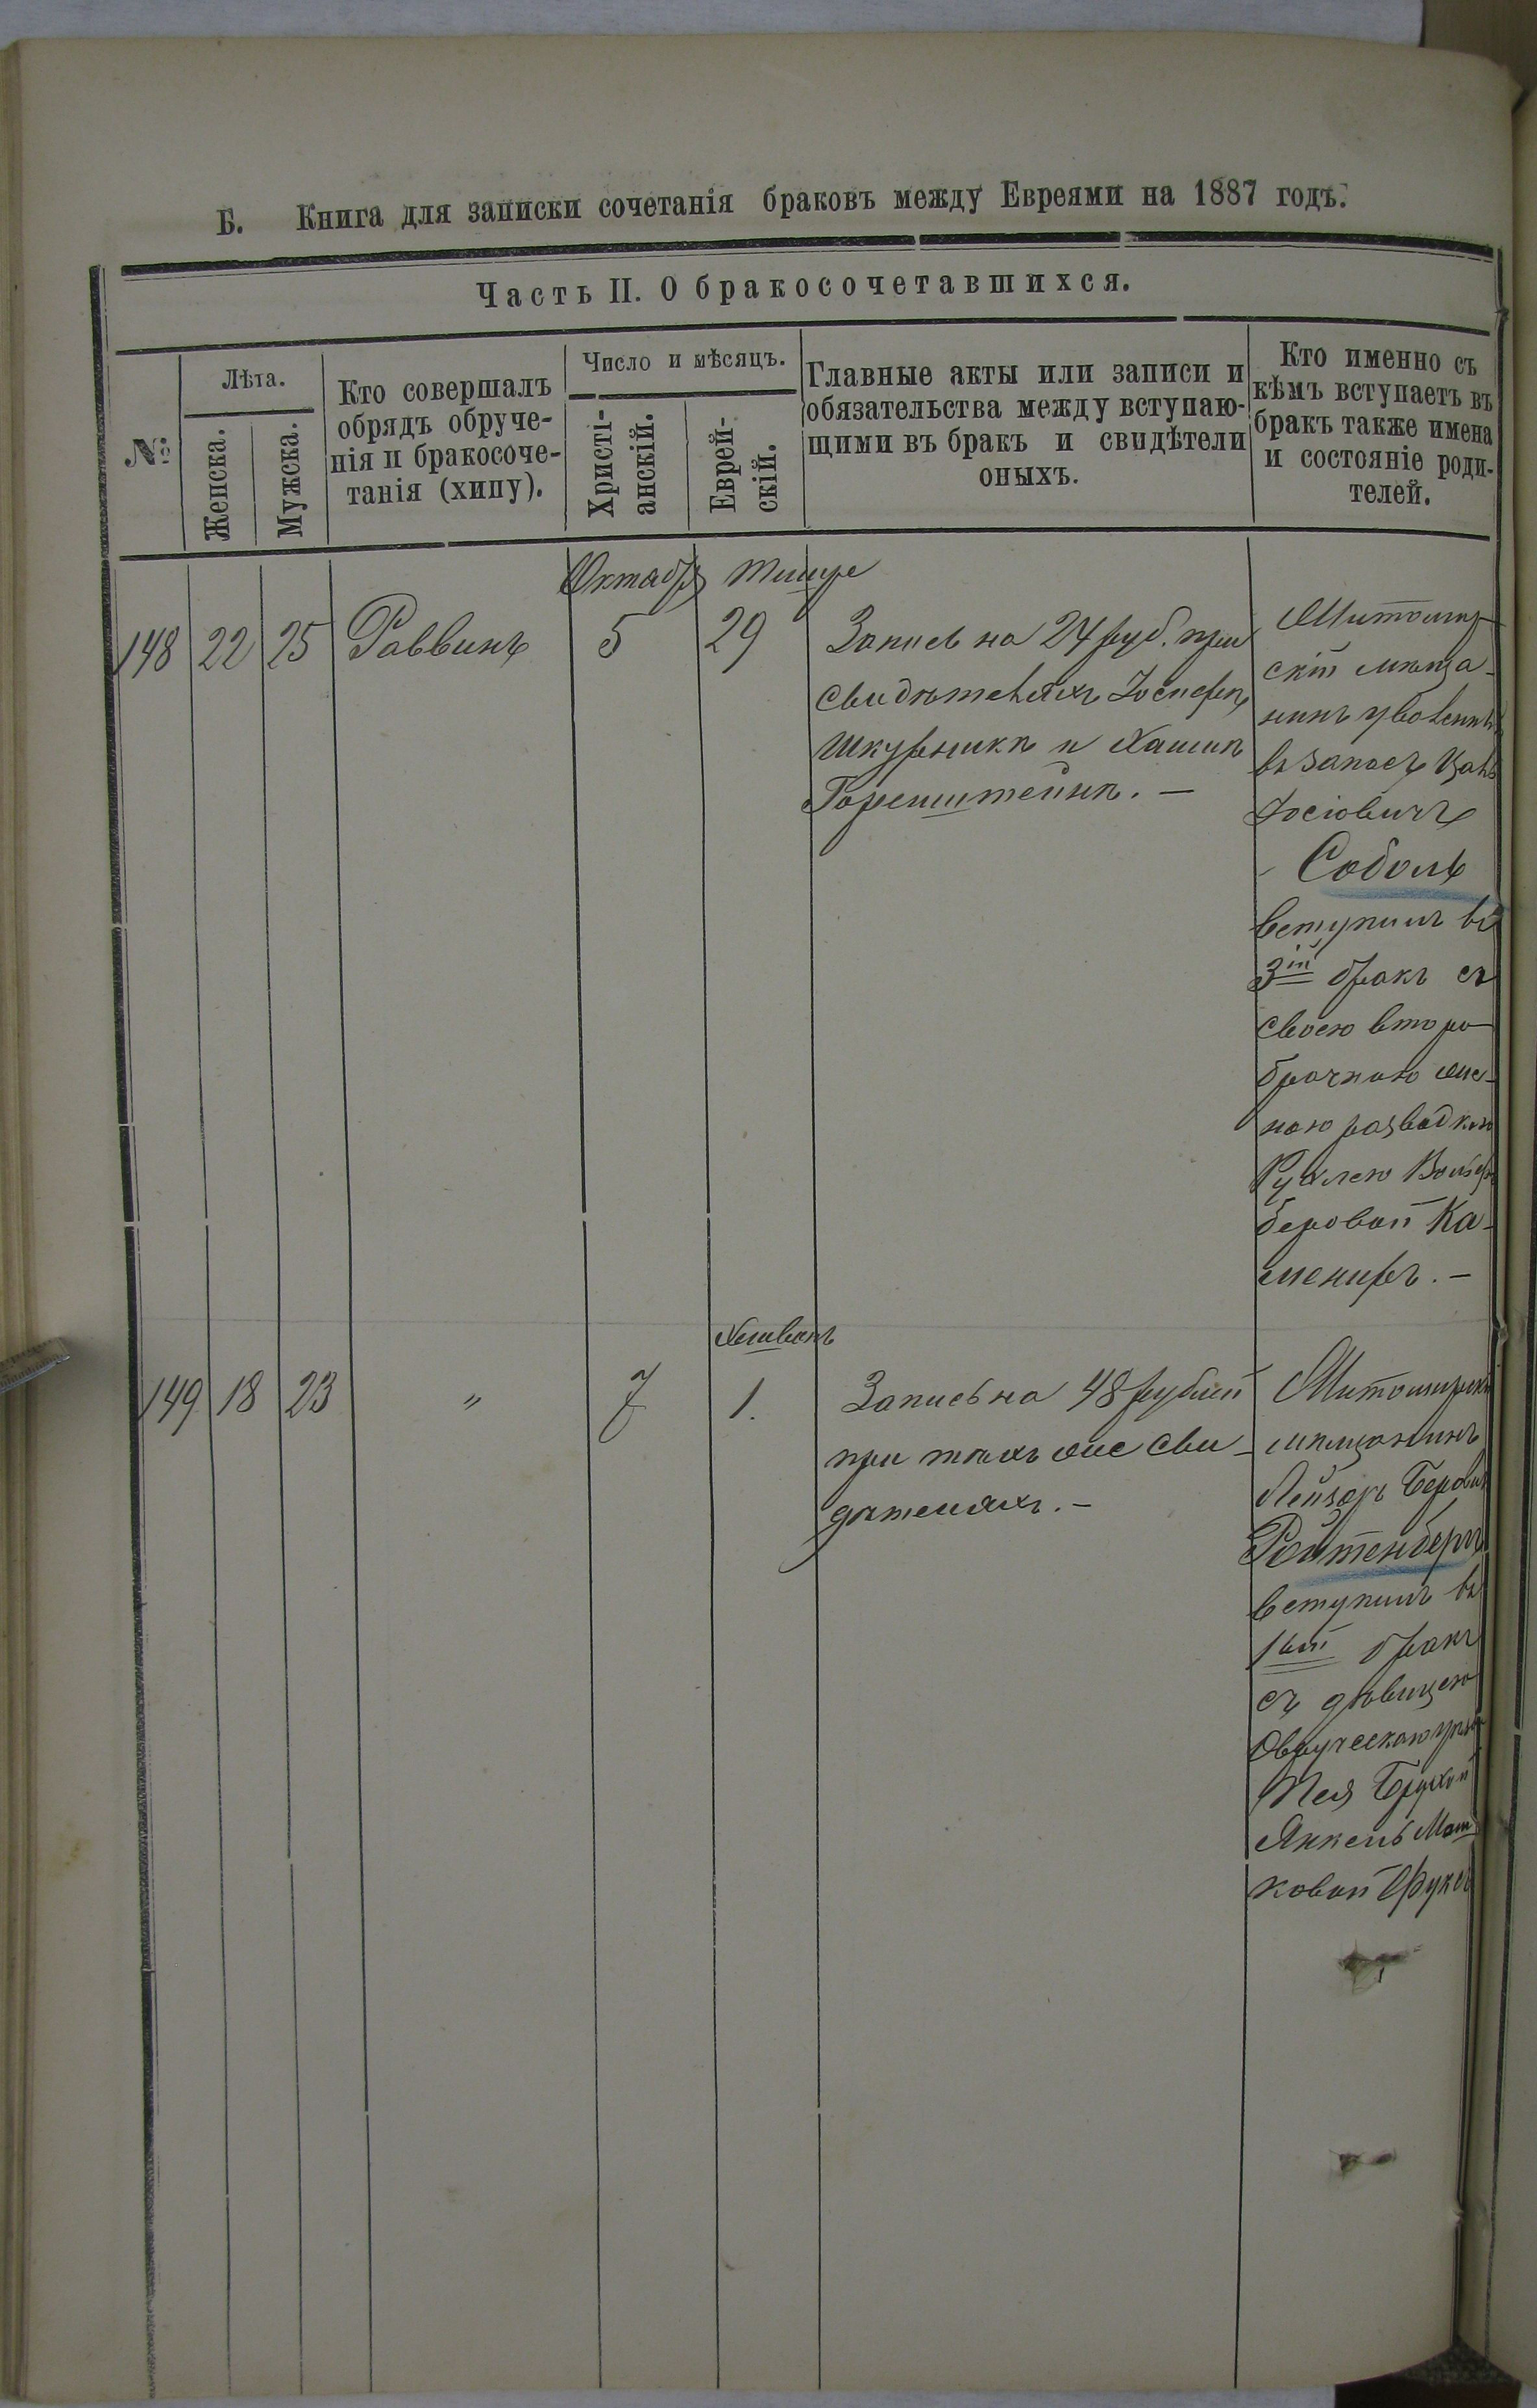 Б. Книга для записки сочетанія браковъ между Евреями на 1887 годъ.
Часть II. О бракосочетавшихся.
№
Лѣта.
Женска.
Мужска.
Кто совершалъ
обрядъ обруче-
нія и бракосоче-
танія (хипу).
Число и мѣсяцъ.
Христі-
анскій.
Еврей-
скій.
Главные акты или записи и
обязательства между вступаю-
щими въ бракъ и свидѣтели
оныхъ.
Кто именно съ
кѣмъ вступаетъ въ
бракъ также имена
и состояніе роди-
телей.
Октябр Тишре
148 22 25 Раввинъ 5 29
Запись на 24 руб. при
свидѣтеляхъ Іосифѣ
Шкурникѣ и Хаимѣ
Горенштейнѣ. —
Житомир-
скій мѣща-
нинъ уволенный
въ запасъ
Іосіовичъ
Соболь
вступилъ въ
3ій бракъ съ
своею второ-
брачною же-
ною разводкою
Рухлею Вольф
беровой Ка-
мениръ. —
Хешванъ
149 18 23 " 7 1.
Запись на 48 рублей
при тѣхъ же сви-
дѣтеляхъ. —
Житомирскій
мѣщанинъ
Лейзоръ Беровичъ
Ройтенбергъ
вступилъ въ
1ый бракъ
съ дѣвицею
Овручскаго уѣзда
Брухой
Янкель Мош
ковой Фуксъ